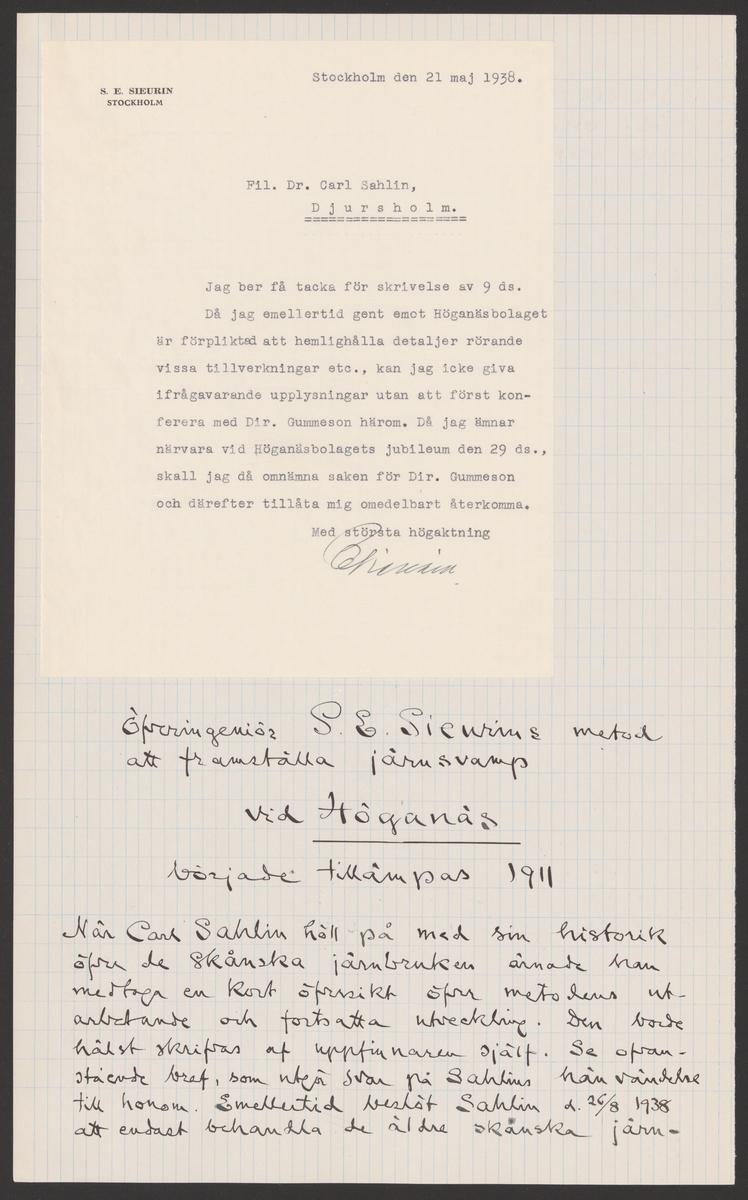 Stockholm den 21 maj 1938.
S. E. SIEURIN
STOCKHOLM
Fil. Dr. Carl Sahlin,
D j u r s h o l m.
Jag ber få tacka för skrivelse av 9 ds.
Då jag emellertid gent emot Höganäsbolaget
är förpliktad att hemlighålla detaljer rörande
vissa tillverkningar etc., kan jag icke giva
ifrågavarande upplysningar utan att först kon-
ferera med Dir. Gummeson härom. Då jag ämnar
närvara vid Höganäsbolagets jubileum den 29 ds.,
skall jag då omnämna saken för Dir. Gummeson
och därefter tillåta mig omedelbart återkomma.
Med största högaktning
Öfveringeniör S. E. Sieurins metod
att framställa järnsvamp
vid Höganäs
började tillämpas 1911
När Carl Sahlin höll på med sin historik
öfver de skånska järnbruken ämnade han
medtaga en kort öfversikt öfver metodens ut-
arbetande och fortsatta utveckling. Den borde
hälst skrifvas af uppfinnaren själf. Se ofvan-
stående bref, som utgör svar på Sahlins hänvändelse
till honom. Emellertid beslöt Sahlin d. 26/8 1938
att endast behandla de äldre skånska järn-